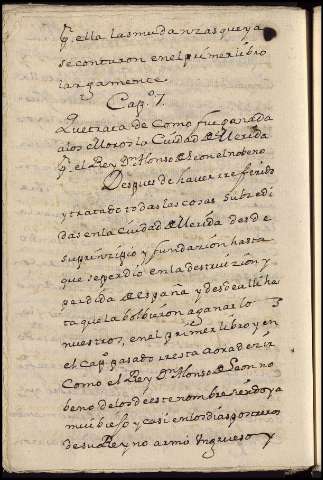 pr. ella las mudanzas que ya
se contaron en el primer libro
largamente
Capº. 7.
Que trata de Como fue ganada
a los Moros la Ciudad de Merida
pr. el Rey Dn. Alonso de Leon el nobeno
Despues de haver referido
y tratado todas las cosas subzedi
das en la Ciudad de Merida desde
su prinzipio y fundazion hasta
que se perdio en la destruizion y
perdida de España y desde alli ha
ta que la bolbieron a ganar lo
nuestros, en el primer libro y en
el Capº. pasado resta aora dezir
Como el Rey Dn. Alonso de Leon no
beno de los de este nombre siendo ya
mui biejo y casi en los dias postreros
de su Reyno armó Ingrueso y